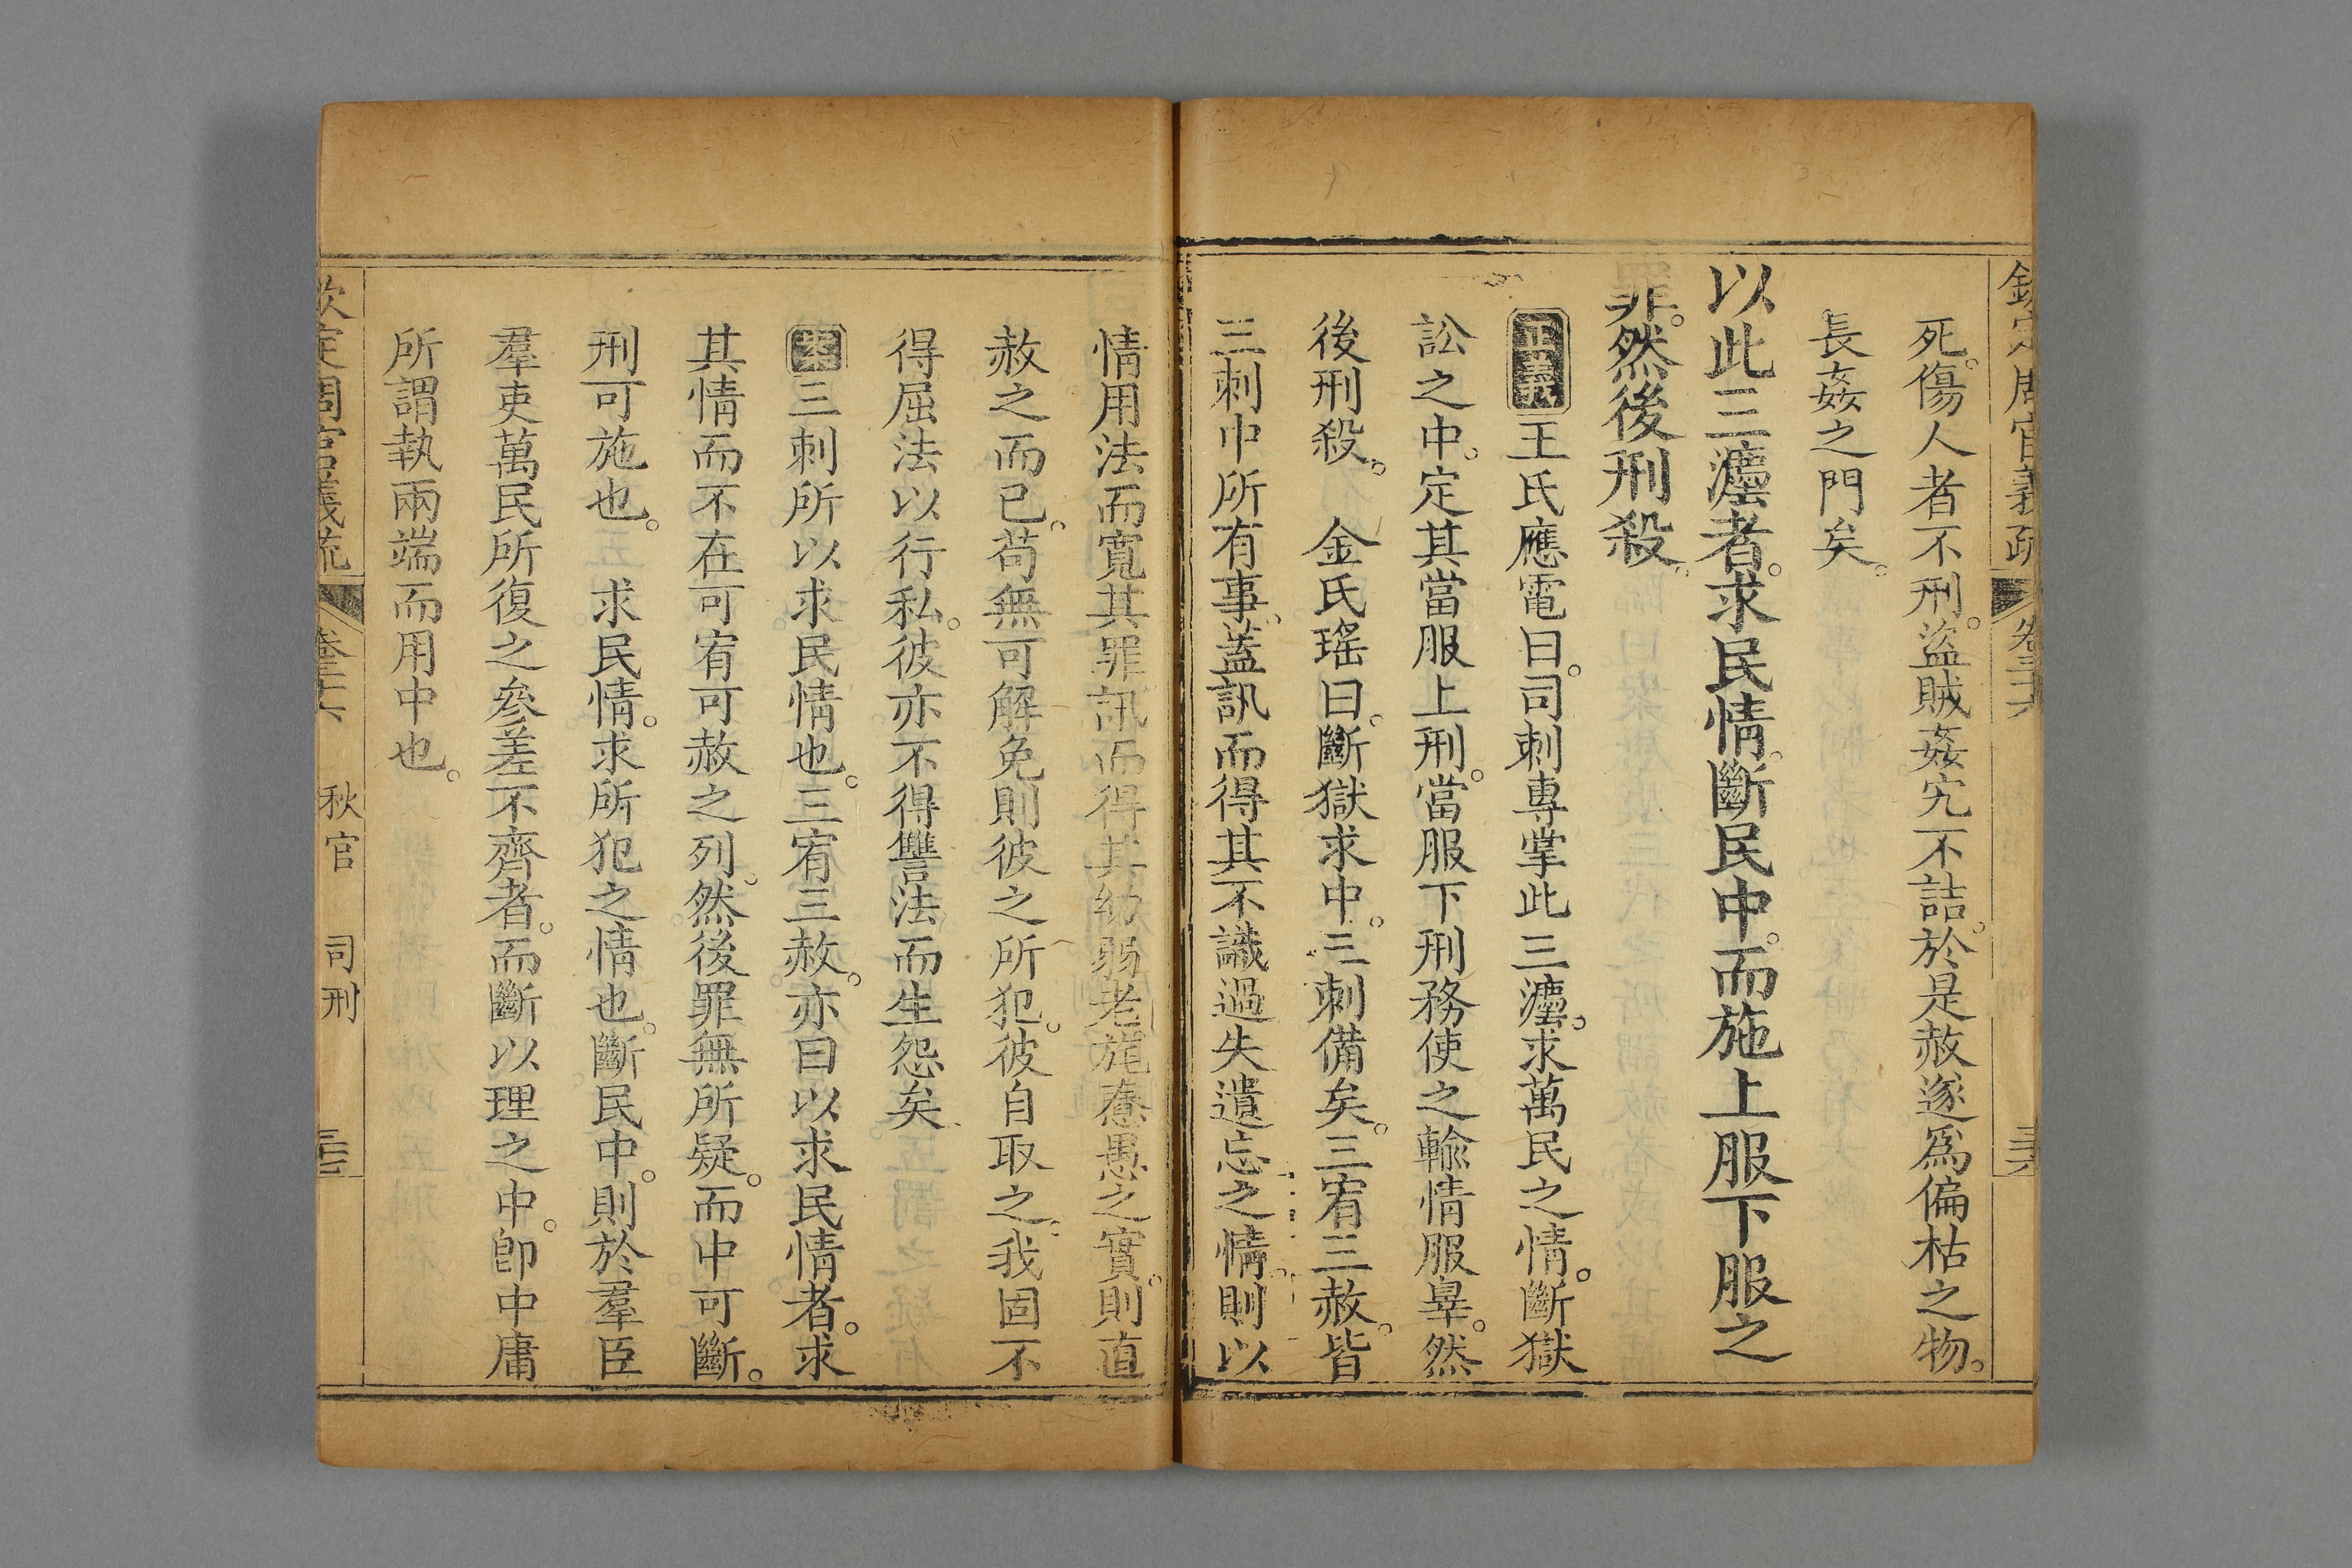 欽定周官義疏 卷三十六 三六
死。傷人者不刑。盜賊姦宄不詰。於是赦遂爲偏枯之物。
長姦之門矣。
以此三灋者。求民情。斷民中。而施上服下服之
罪。然後刑殺。
正義王氏應電曰。司刺專掌此三灋。求萬民之情。斷獄
訟之中。定其當服上刑。當服下刑務使之輸情服辠。然
後刑殺。 金氏瑤曰。斷獄求中。三刺備矣。三宥三赦。皆
三刺中所有事。蓋訊而得其不識過失遺忘之情。則以
情用法而寬其罪訊而得其幼弱老旄憃愚之實。則直
赦之而已。苟無可解免則彼之所犯。彼自取之。我固不
得屈法以行私。彼亦不得讐法而生怨矣
三刺所以求民情也。三宥三赦。亦曰以求民情者。求
其情而不在可宥可赦之列。然後罪無所疑。而中可斷。
刑可施也。 求民情。求所犯之情也。斷民中。則於羣臣
羣吏萬民所復之參差不齊者。而斷以理之中。卽中庸
所謂執兩端而用中也。
欽定周官義疏 卷三十六 秋官 司刑 三七